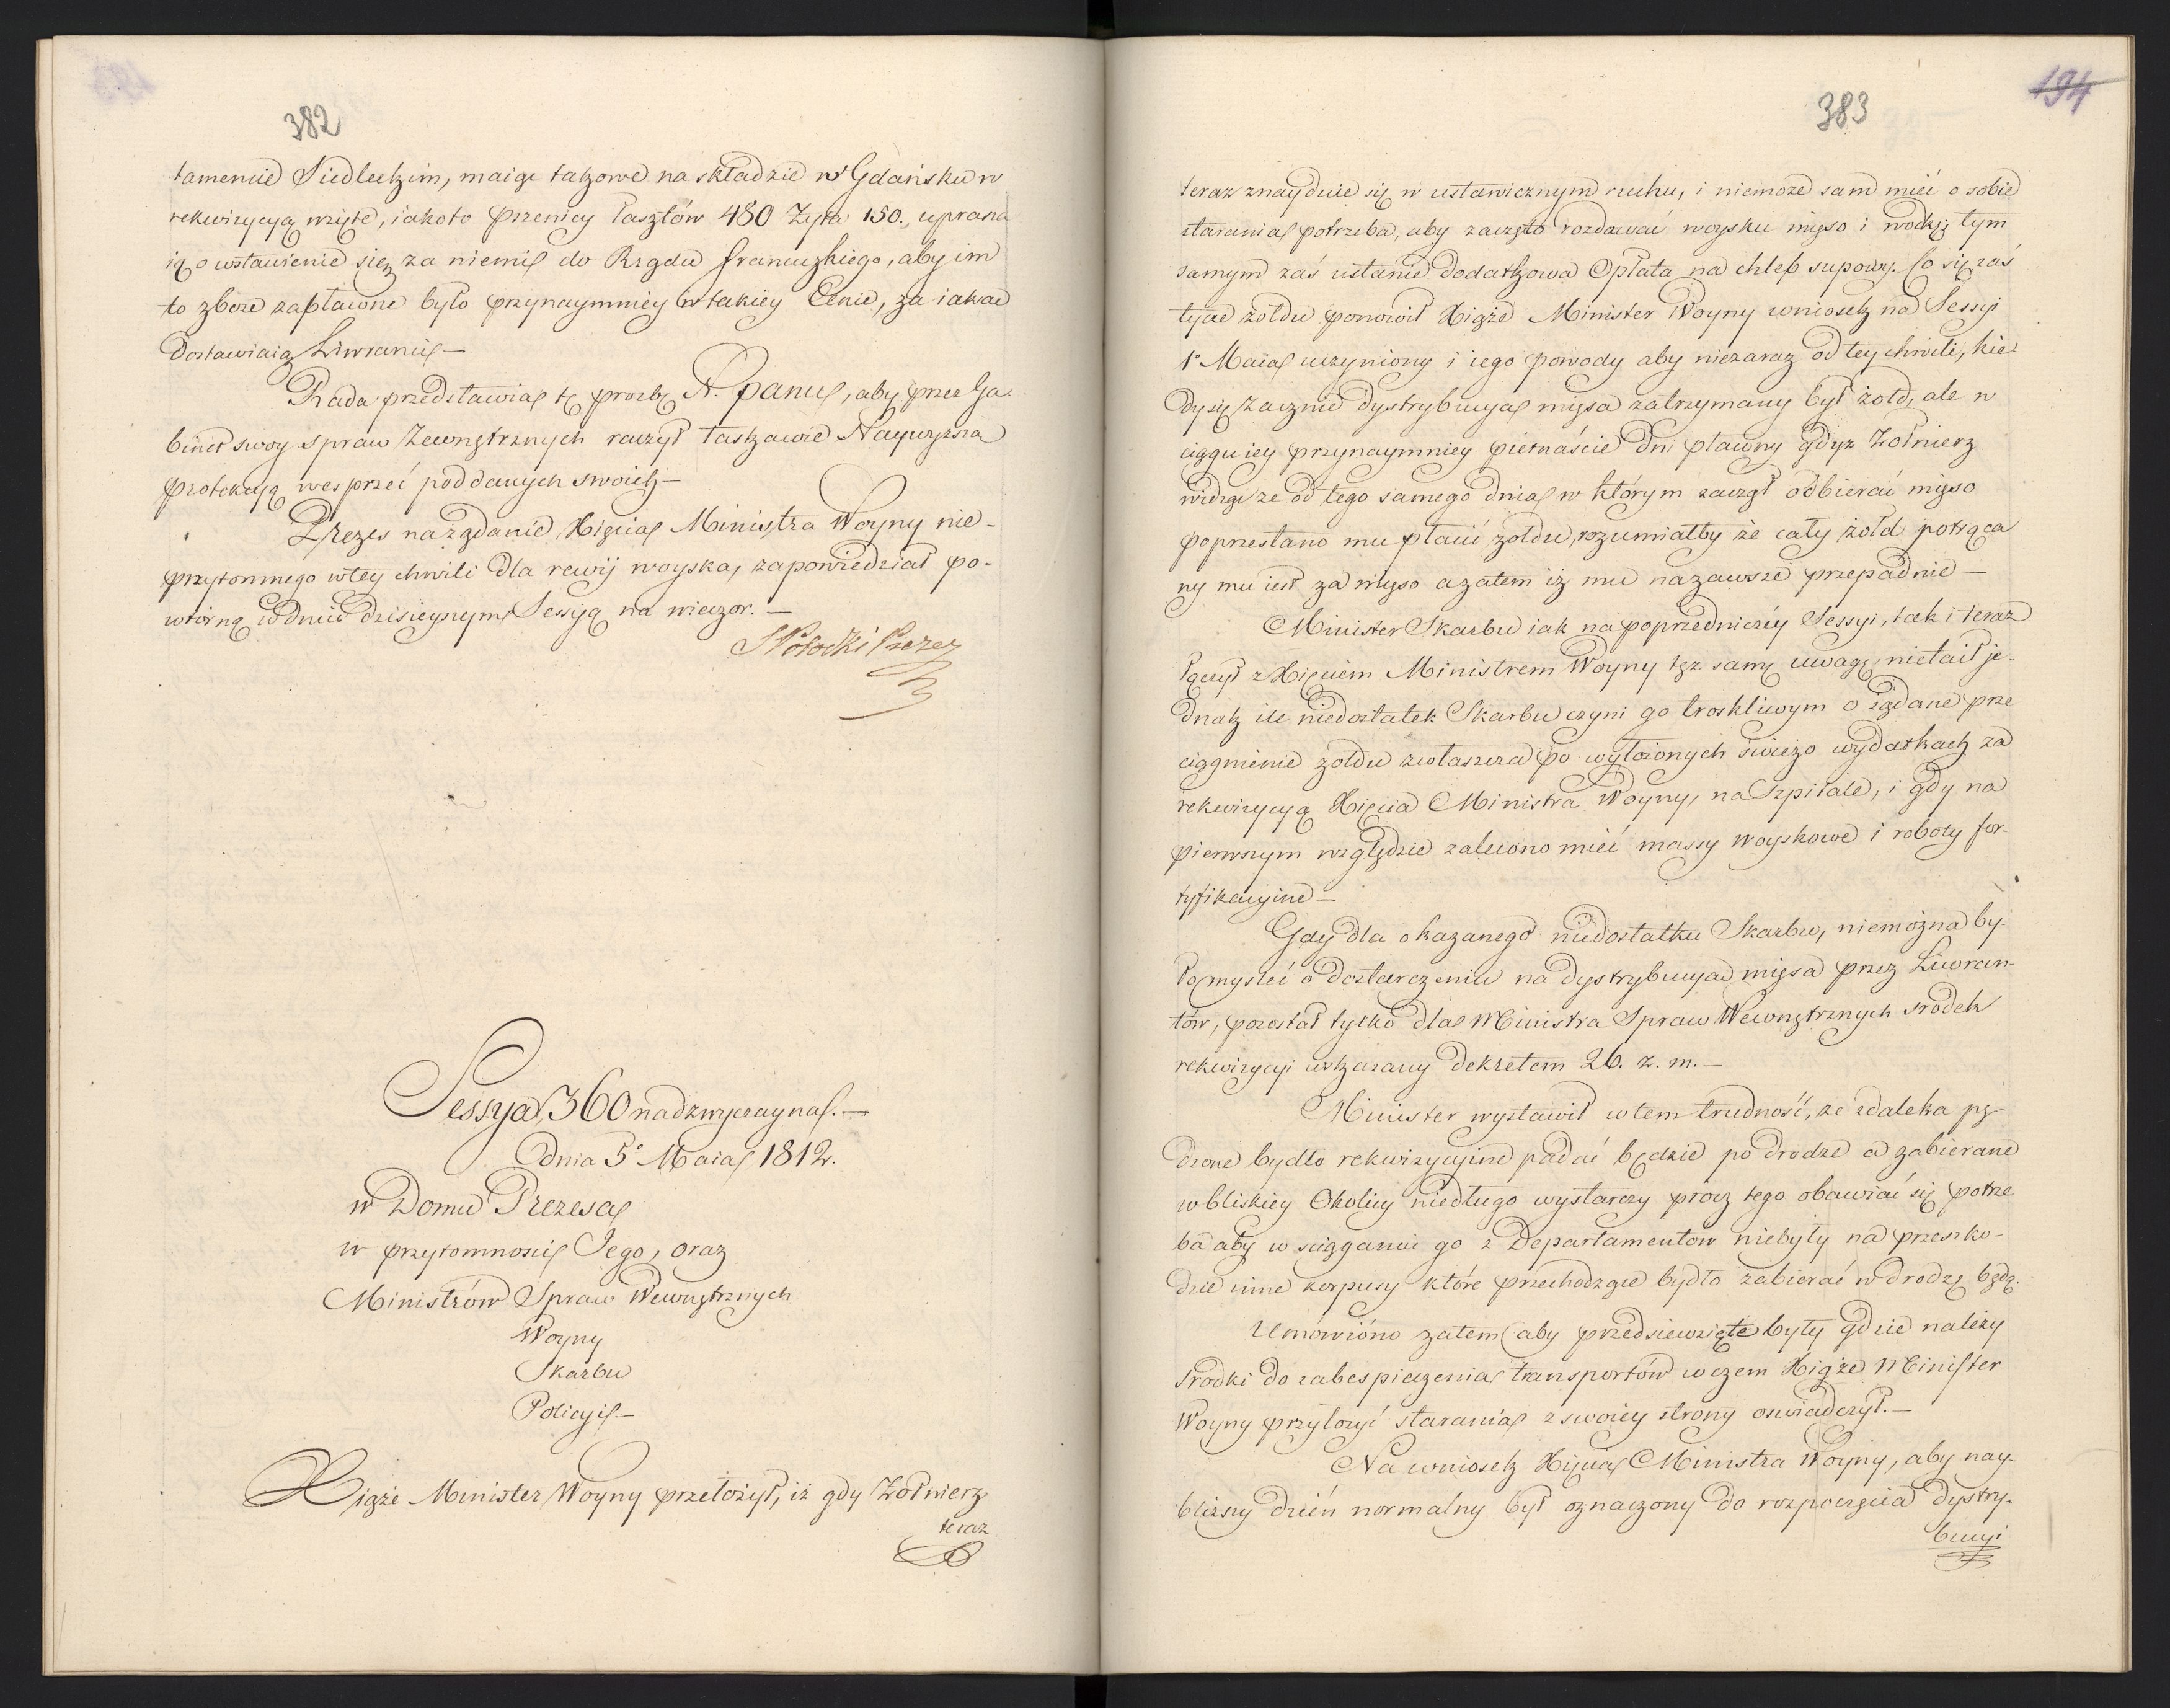 382
tamencie Siedleckim, maiąc takowe na składzie w Gdańsku w
rekwizycyą wzięte, iakoto Przenicy łasztów 480 Żyta 150., uprasza
ią o wstawienie się za niemi do Rządu francuzkiego, aby im
to zboże zapłacone było przynaymniey w takiey Cenie, za iakąe
dostawiaią Liwranci —
Rada przedstawia tę prozbę N. panu, aby przez Ga-
binet swoy spraw Zewnętrznych raczył łaskawie Naywyższą
protekcyą wesprzeć poddanych swoich —
Prezes na żądanie Xięcia Ministra Woyny nie-
przytomnego w tey chwili dla rewij woyska, zapowiedział po-
wtórną w dniu dzisieyszym Sessyą na wieczor. —
S Potocki Prezes
Sessya 360 nadzwyczayna. —
dnia 5º Maia 1812.
w Domu Prezesa
w przytomności Jego, oraz
Ministrów Spraw Wewnętrznych
Woyny
Skarbu
Policyi —
Xiąże Minister Woyny przełożył, iż gdy Żołnierz
teraz
383
194
teraz znayduie się w ustawicznym ruchu, i niemoże sam mieć o sobie
starania potrzeba, aby zaczęto rozdawać woysku mięso i wodkę tym
samym zaś ustanie dodatkowa Opłata na chleb supowy. Co się zaś
tycze żołdu ponowił Xiąże Minister Woyny wniosek na Sessyi
1º Maia uczyniony i iego powody aby niezaraz od tey chwili, kie-
dy się zacznie dystrybucya mięsa zatrzymany był żołd, ale w
ciągu iey przynaymniey piętnaście dni płacony gdyż Żołnierz
widząc ze od tego samego dnia w którym zaczął odbierać mięso
poprzestano mu płacić żołdu, rozumiałby że cały żołd potrąca
ny mu iest za mięso a zatem iż mu nazawsze przepadnie —
Minister Skarbu iak na poprzedniczéy Sessyi, tak i teraz
łączył z Xięciem Ministrem Woyny tęz samę uwagę, nietaił je-
dnak ile niedostatek Skarbu czyni go troskliwym o żądane prze
ciągnienie żołdu zwłaszcza po wyłożonych świeżo wydatkach za
rekwizycyą Xięcia Ministra Woyny, na Szpitale, i gdy na
pierwszym względzie zalecono mieć massy woyskowe i roboty for-
tyfikacyine —
Gdy dla okazanego niedostatku Skarbu, niemożna by-
ło myśleć o dostarczeniu na dystrybucyą mięsa przez Liwran-
tów, pozostał tylko dla Ministra Spraw Wewnętrznych srodek
rekwizycyi wskazany dekretem 26. z. m. —
Minister wystawił w tem trudność, że zdaleka pę-
dzone bydło rekwizycyine padać będzie po drodze a zabierane
w bliskiey Okolicy niedługo wystarczy procz tego obawiać się potrze
ba aby w sciąganiu go z Departamentow niebyły na przeszko-
dzie inne korpusy które przechodzące bydło zabierać w drodzę będą.
Umówióno zatem aby przedsiewzięte były gdzie należy
srodki do zabespieczenia transportów w czem Xiąże Minister
Woyny przyłożyć starania z swoiey strony oswiadczył. —
Na wniosek Xięcia Ministra Woyny, aby nay-
bliższy dzień normalny był oznaczony do rozpoczęcia dystry-
bucyi